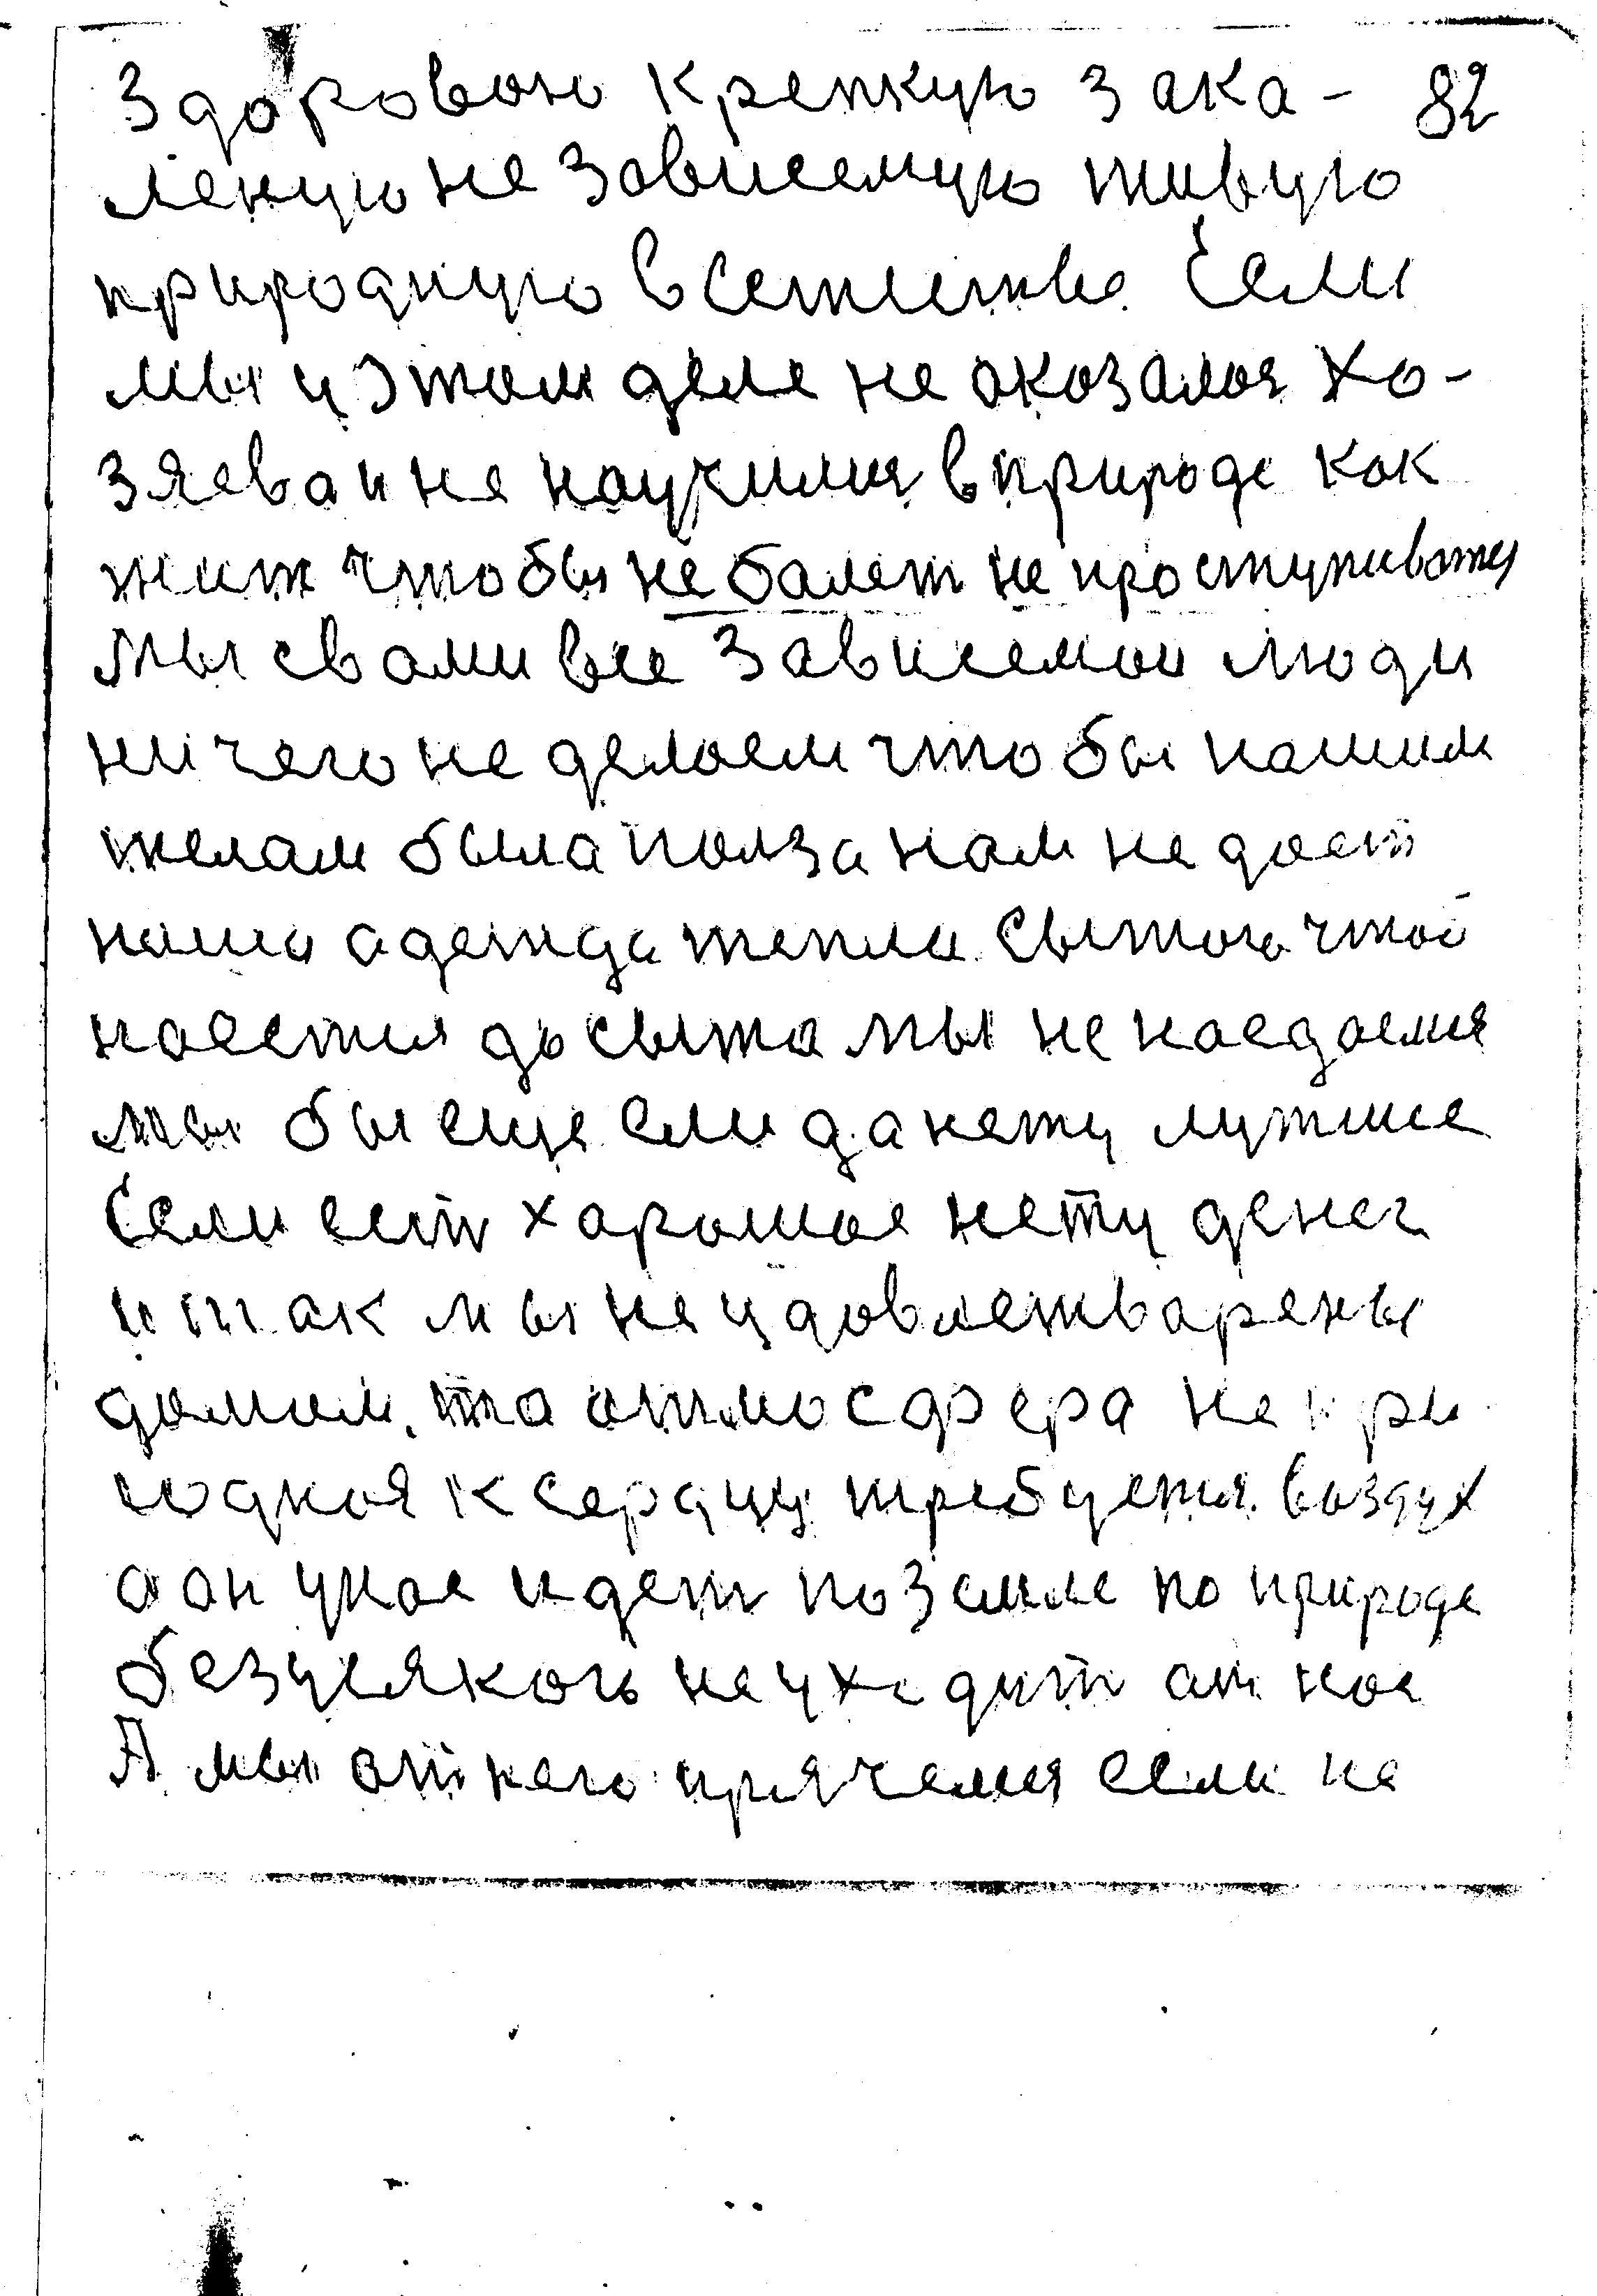 здоровою крепкую зака- 82
леную не зависемую живую
природную в сетестве. Если
мы у этом деле не оказался хо-
зяева и не научился в природе как
жит чтобы не балет не простуживатся
мы свами все зависемои люди
ничего не делаем чтобы нашим
телам была полза нам не дает
наша адежда тепла. Сытого чтой
наестся до сыта мы не наедаемся
мы бы еще ели да нету лутше
Если ест харошое нету денег
и так мы не удовлетварены
домом, та атмосфера не при
годная к сердцу требуется. воздух
а он у нас идет по земле по природе
без усякого не уходит ат нас
А мы от него прячемся если не